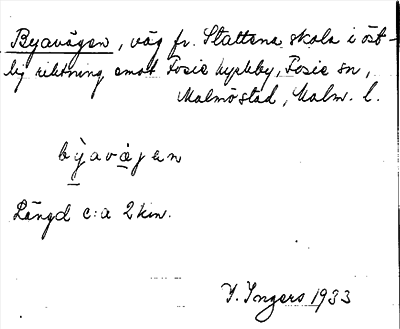 Byavägen, väg fr. Stattena skola i öst-
lig riktning emot Fosie kyrkby, Fosie sn,
Malmö stad, Malm. l.
bỳavàjen
Längd c:a 2 km.
I. Ingers 1933